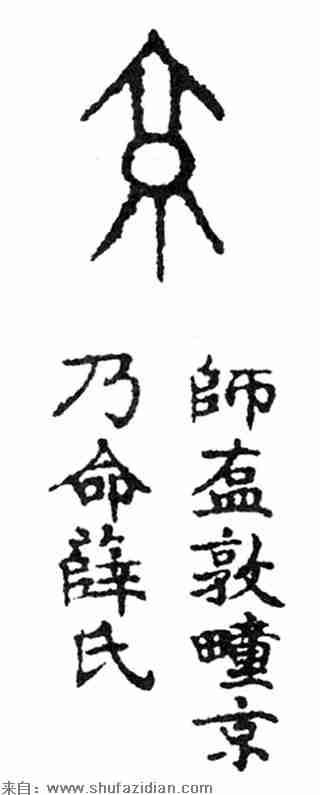 京
師敦疃京
乃命薛氏
来自：www.shufazidian.com